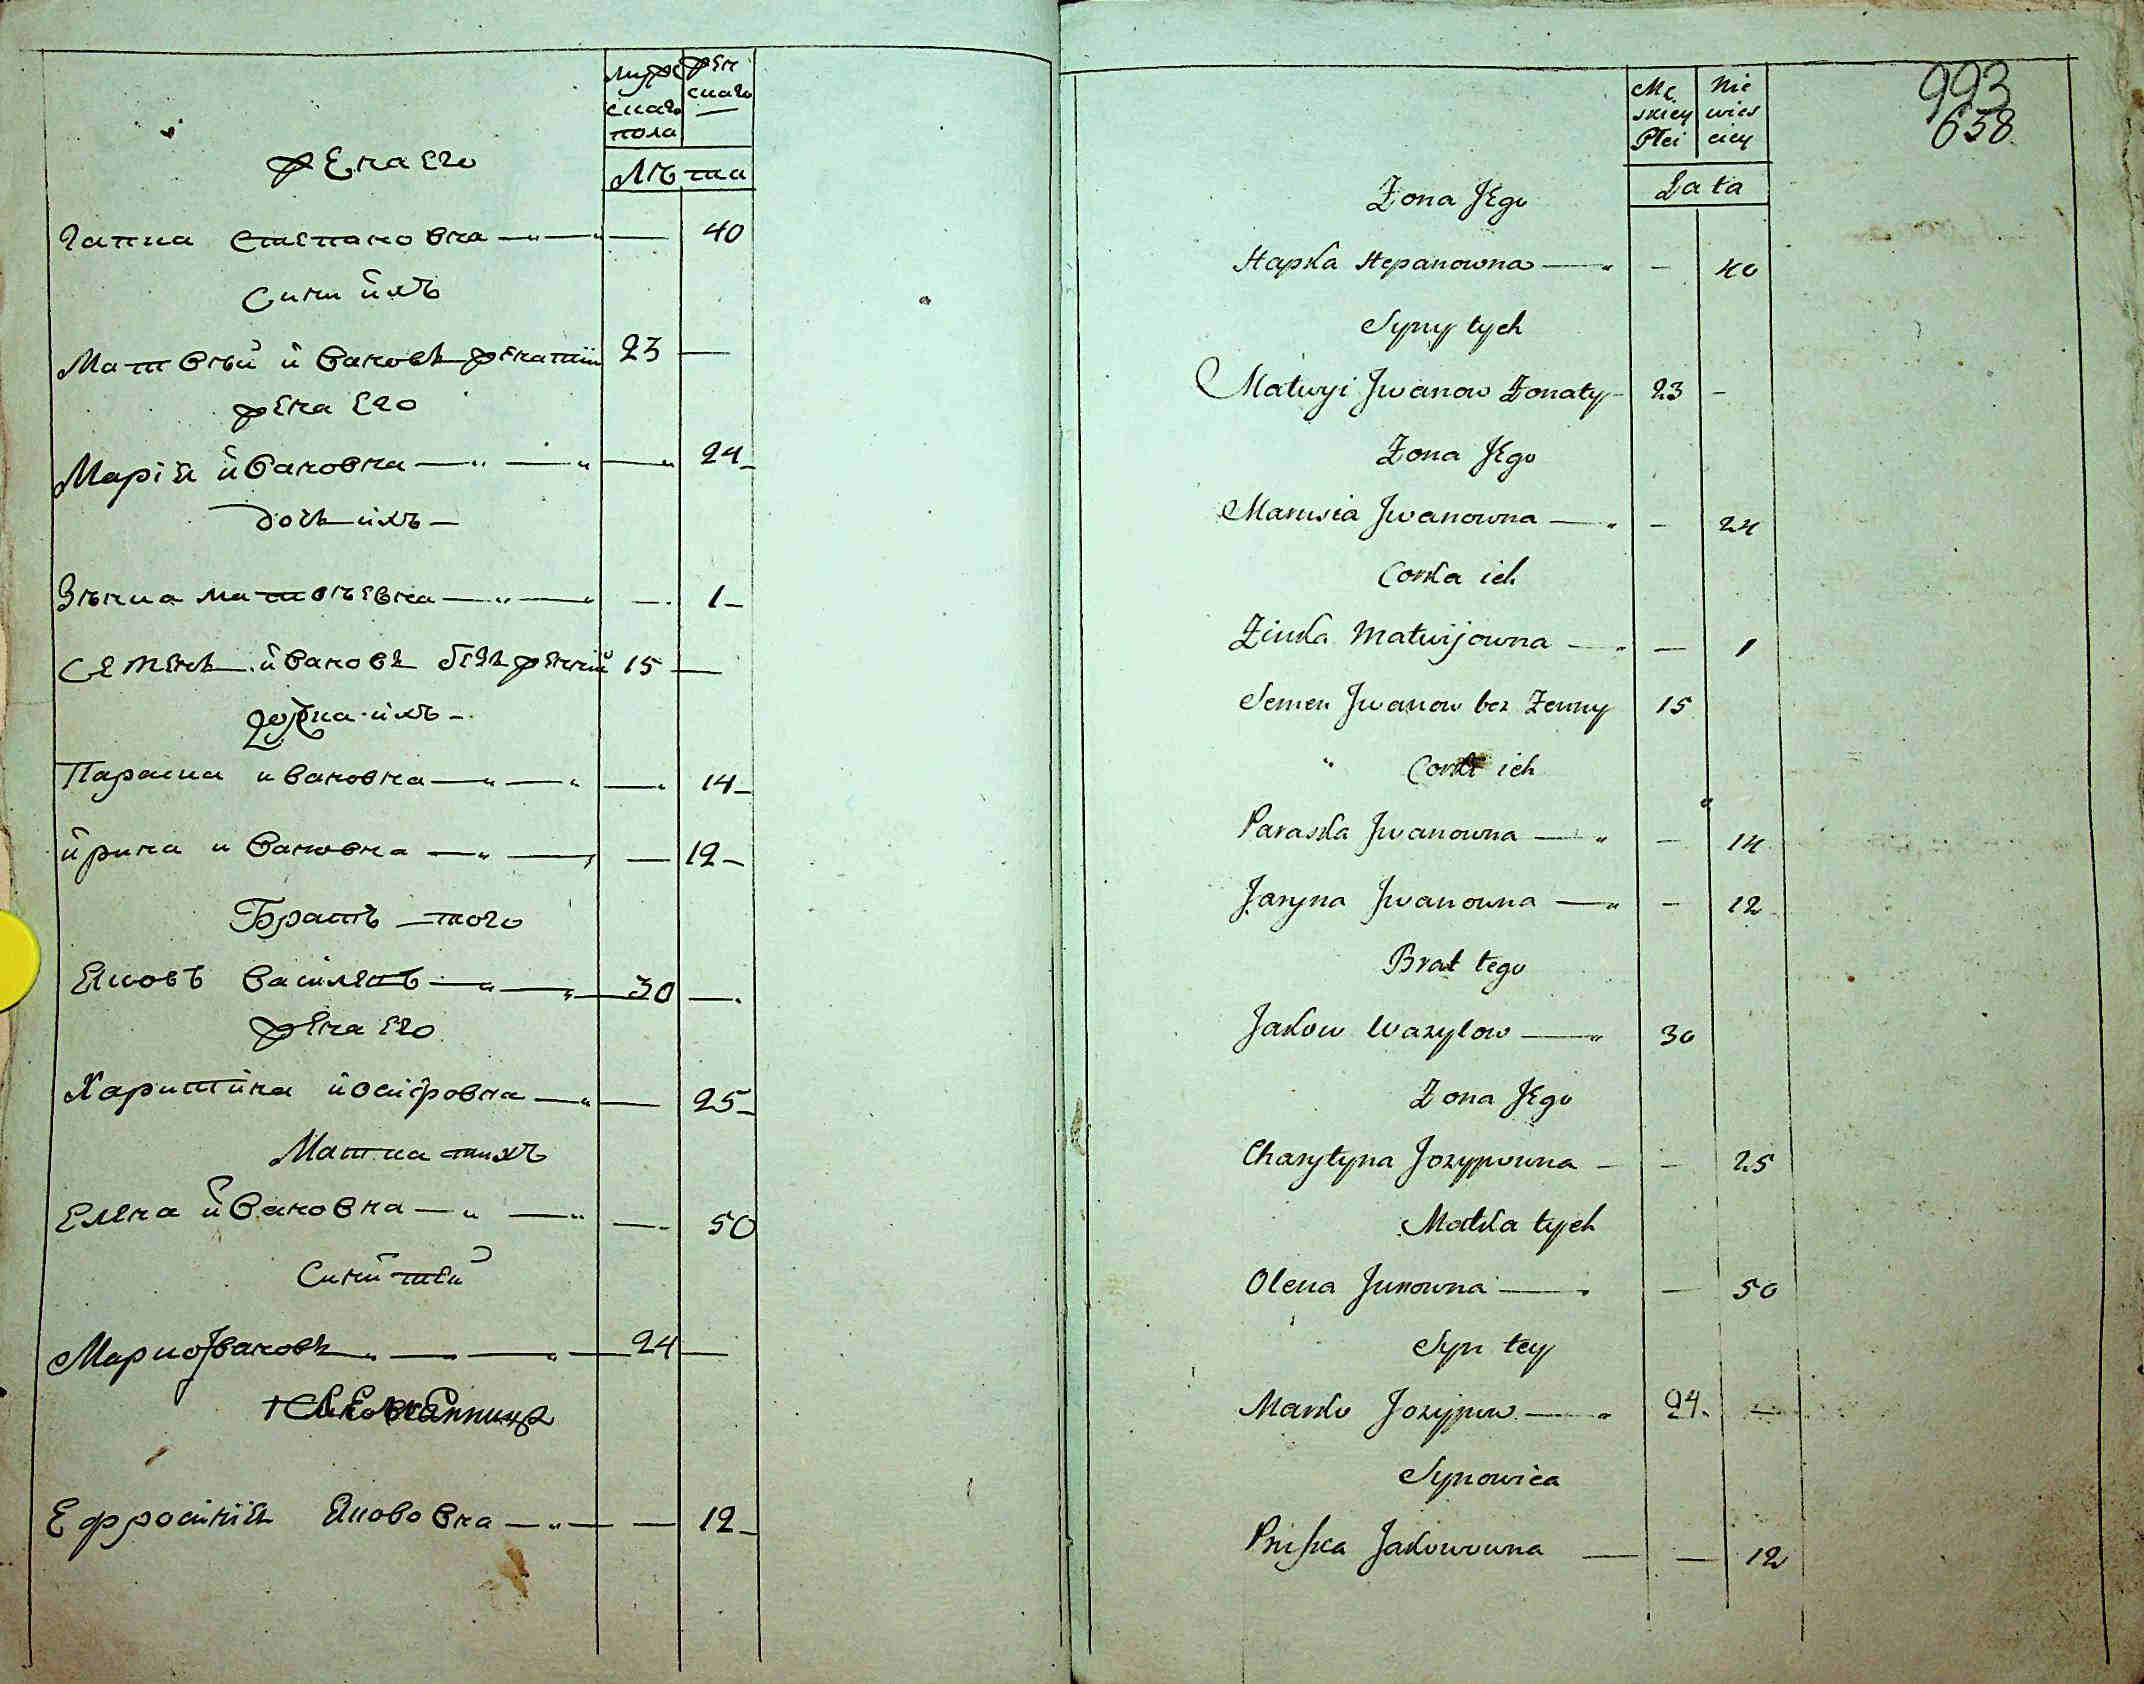 мужскаго пола
женскаго
Лѣта
жена его
Гапка Степановна 40
Сини ихъ
Матвѣй Ивановъ женатій 23
жена его
Марія Ивановна 24
дочь ихъ
Зѣнка Матвѣевна 1
Семенъ Ивановъ безженній 15
дочка ихъ
Параска Ивановна 14
Ирина Ивановна 12
Братъ того
Яковъ Васілевъ 30
жена его
Харитина Иосіфовна 25
Матка тихъ
Елена Ивановна 50
Синй тей
Марко Jвановъ 24
Ефросінія Якововна 12
993
658
Męskiey Płci
Niewiesciey
Lata
Zona Jego
Hapka Stepanowna 40
Syny tych
Matwyi Jwanow Zonaty 23
Zona Jego
Marusia Jwanowna 24
Corka ich
Zinka Matwijowna 1
Semen Jwanow bez Zenny 15
Corki ich
Paraska Jwanowna 14
Jaryna Jwanowna 12
Brat tego
Jakow Wazylow 30
Zona Jego
Charytyna Jozypowna 25
Matka tych
Olena 50
Syn tey
Marko Jozypow 24
Synowica
Priska Jakowowna 12